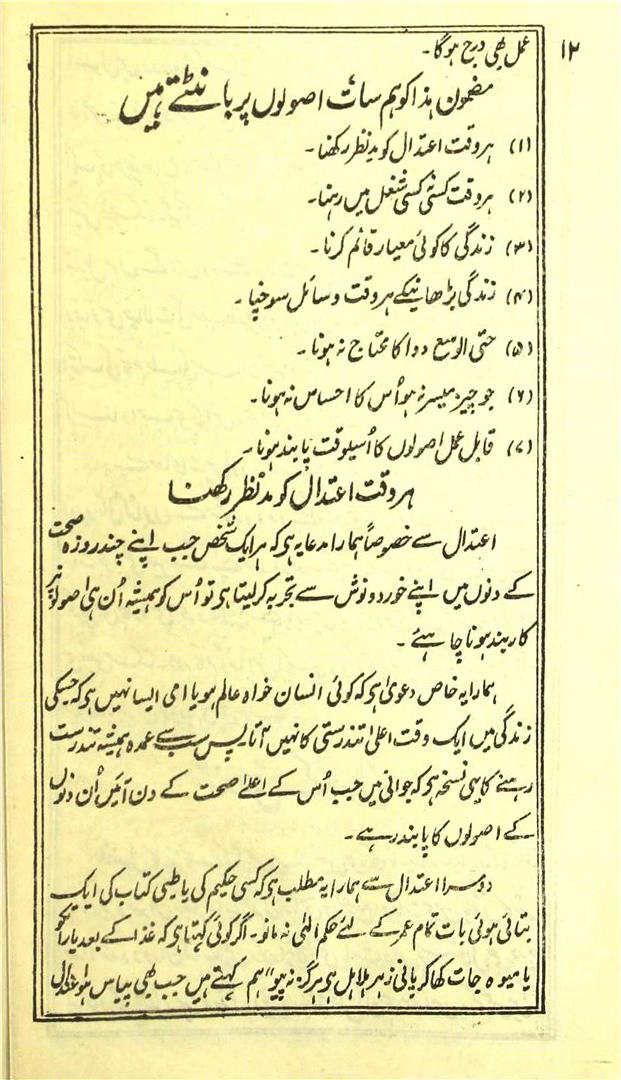 ۱۲
عمل بھی درج ہوگا۔
مضمون ہذا کو ہم سات اصولوں پر بانٹتے ہیں
(۱) ہر وقت اعتدال کو مدنظر رکھنا۔
(۲) ہر وقت کسی کسی شغل میں رہنا۔
(۳) زندگی کا کوئی معیار قائم کرنا۔
(۴) زندگی بڑھانیکے ہر وقت وسائل سوچنا۔
(۵) حتی الوسع دوا کا محتاج نہ ہونا۔
(۶) جو چیز میسر نہ ہو اُس کا احساس نہ ہونا۔
(۷) قابل عمل اصولوں کا اُسیوقت پابند ہونا۔
ہر وقت اعتدال کو مدنظر رکھنا
اعتدال سے خصوصاً ہمارا مدعا یہ ہی کہ ہر ایک شخص جب اپنے چند روزہ صحت
کے دنوں میں اپنے خورد و نوش سے تجربہ کر لیتا ہی تو اُس کو ہمیشہ اُن ہی اصولوں پر
کاربند ہونا چاہئے۔
ہمارا یہ خاص دعویٰ ہی کہ کوئی انسان خواہ عالم ہو یا امی ایسا نہیں ہی کہ جسکی
زندگی میں ایک وقت اعلیٰ تندرستی کا نہیں آتا پس سب سے عمدہ ہمیشہ تندرست
رہنے کا یہی نسخہ ہی کہ جوانی میں جب اُس کے اعلےٰ صحت کے دن آئیں اُن دنوں
کے اصولوں کا پابند رہے۔
دوسرا اعتدال سے ہمارا یہ مطلب ہی کہ کسی حکیم کی یا طبی کتاب کی ایک
بتائی ہوئی بات تمام عمر کے لئے حکم الٰہی نہ مانو۔ اگر کوئی کہتا ہی کہ غذا کے بعد یا رات کو
یا میوہ جات کھا کر پانی زہر ہلاہل ہی ہرگز نہ پیو" ہم کہتے ہیں جب بھی پیاس ہو اعتدال